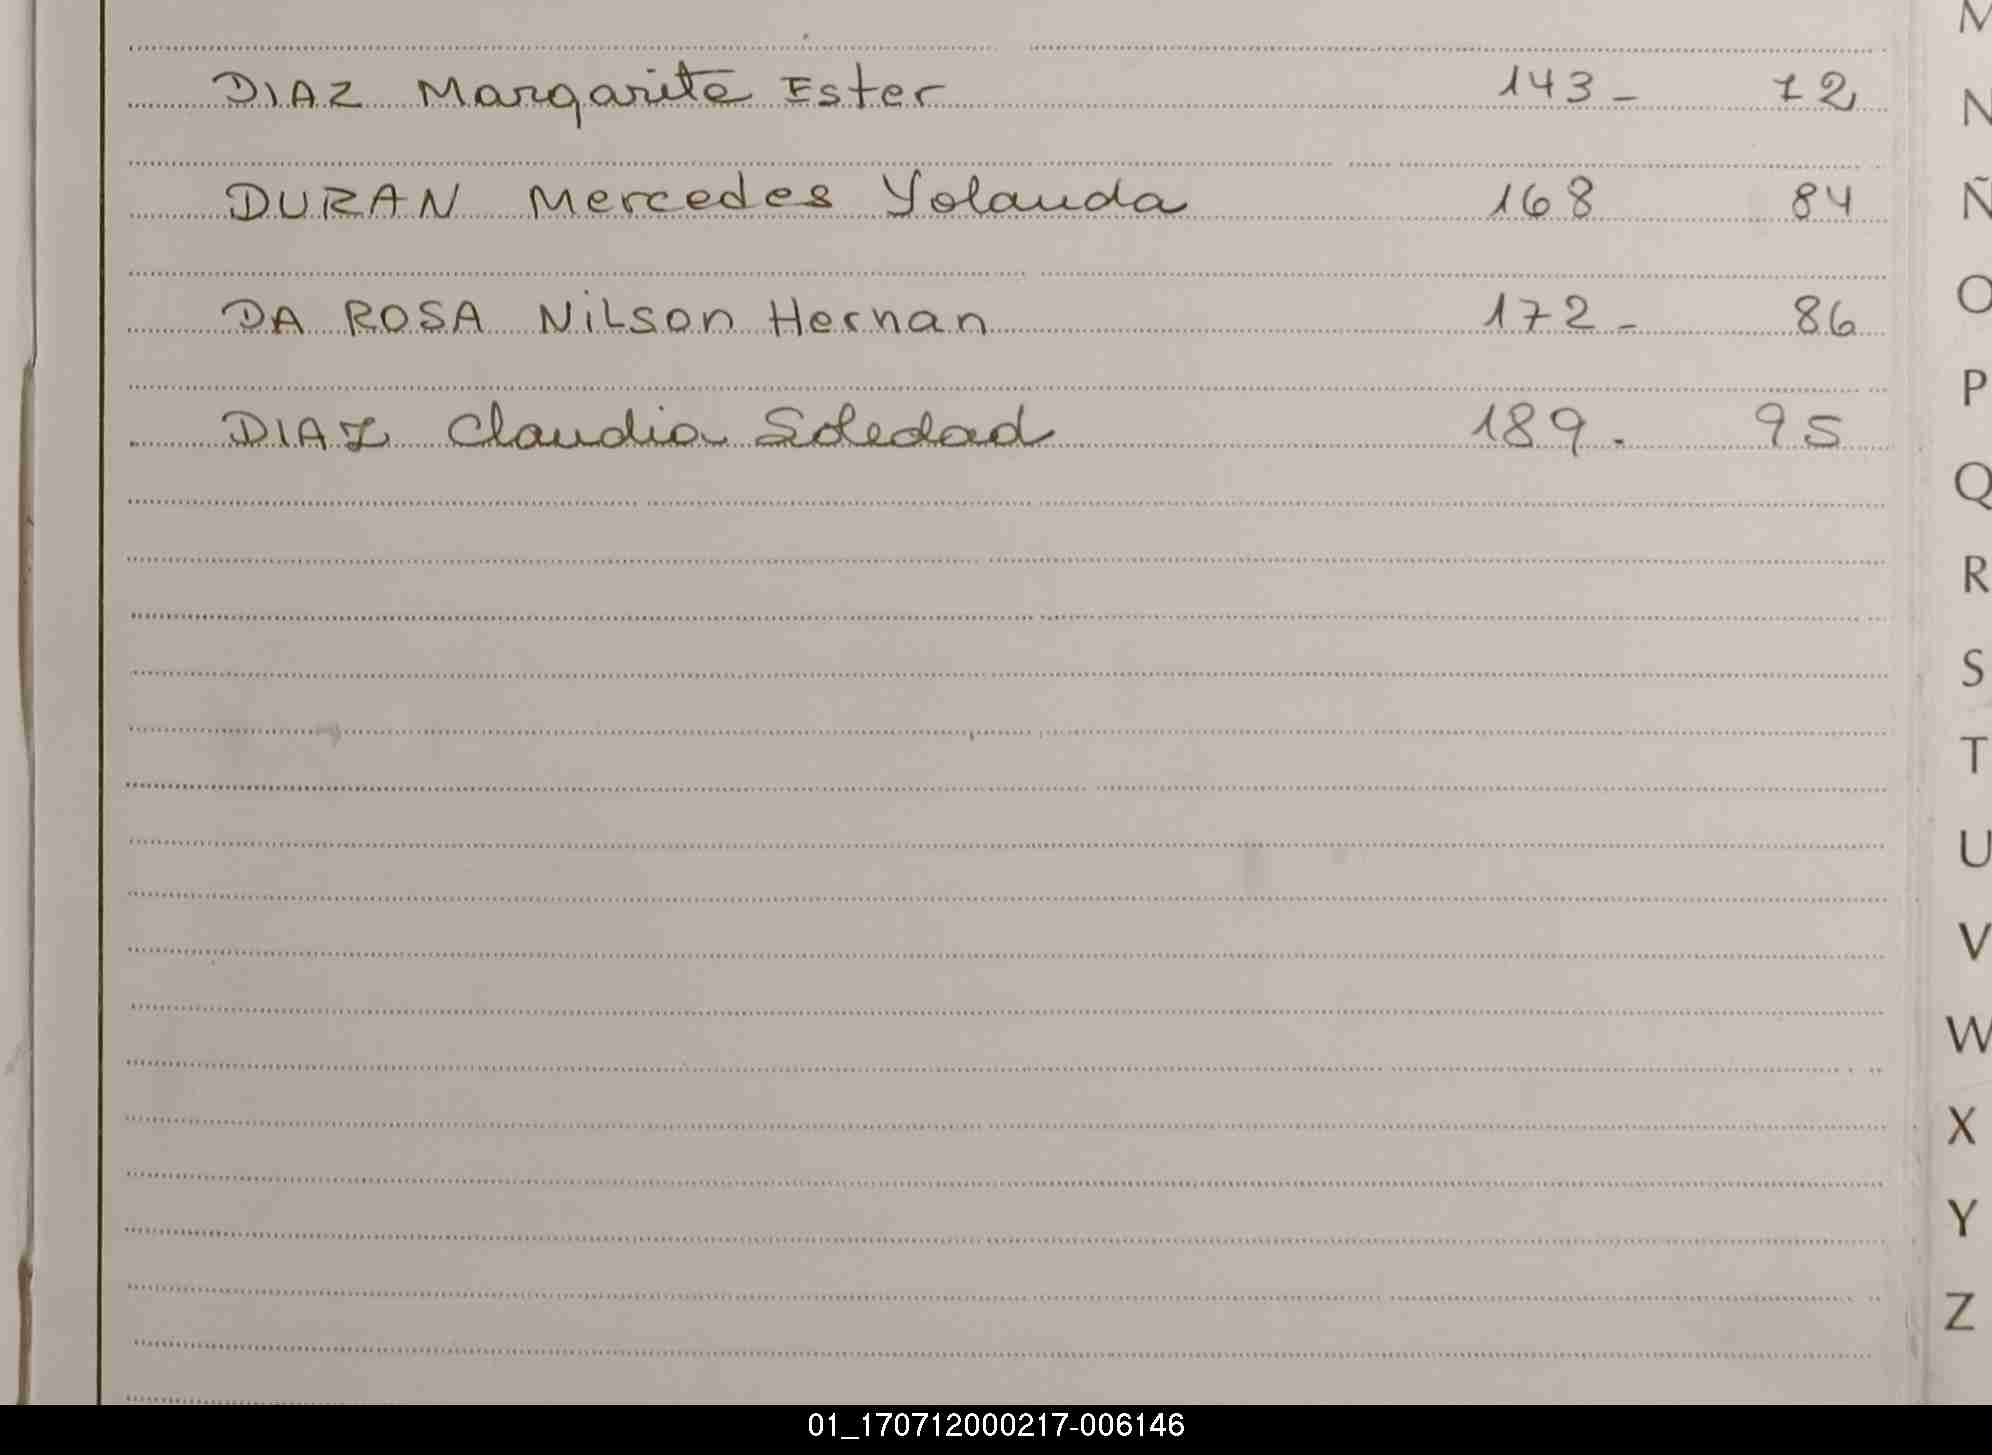 M
DIAZ Margarita Ester 143- 72
N
DURAN Mercedes Yolanda 168 84
Ñ
O
DA ROSA Nilson Hernan 172- 86
P
DIAZ Claudia Soledad 189. 95
Q
R
S
T
U
V
W
X
Y
Z
01_170712000217-006146